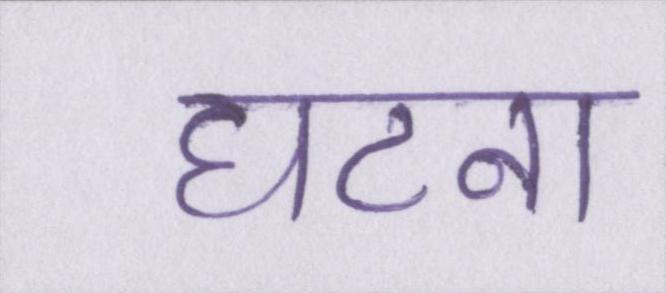 घटना